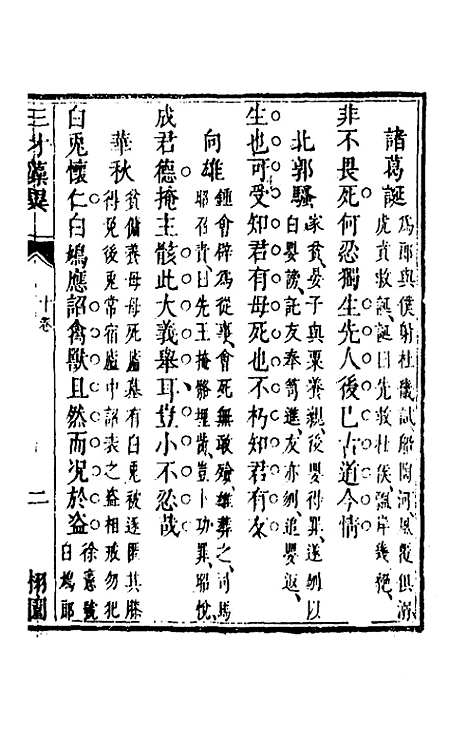 諸葛誕 為郎與僕射杜畿試船陶河風覆俱溺
虎賁救誕誕曰先救杜侯岸幾絕
非不畏死何忍獨生先人後巳古道今情
北郭騷 家貧晏子與粟養親後嬰得罪遂刎以
白嬰謗託友奉笥進友亦刎追嬰返
生也可受知君有母死也不朽知君有友
向雄 鍾會辟為從事會死無敢殮雄葬之司馬
昭召責曰先王掩骼埋胔豈卜功罪昭悅
成君德掩主骸此大義舉耳豈小不忍哉
華秋 貧傭養母母死廬墓有白兔被逐匿其膝
得免後兔常宿廬中詔表之盜相戒勿犯
白兔懷仁白鳩應詔禽獸且然而况於盜 徐憲號
白鳩郎
三才藻異 十卷 二 栩園